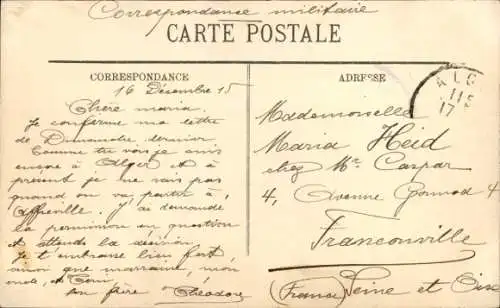 Correspondance militaire
CARTE POSTALE
CORRESPONDANCE
ADRESSE
16 Décembre 15
Chère maria.
Je confirme ma lettre
de Dimanche dernier
Comme tu vois je suis
encore à Alger et à
présent je ne sais pas
quand on va partir à
Affreville. J'ai demandé
la permission en question
et attends la décision.
Je t'embrasse bien fort,
ainsi que marraine, mon
oncle, et Tom.
ton frère Théodore
ALG
11
17
Mademoiselle
Maria Heid
chez Mr Caspar
4, Avenue Gounod 4
Franconville
(France) Seine et Oise